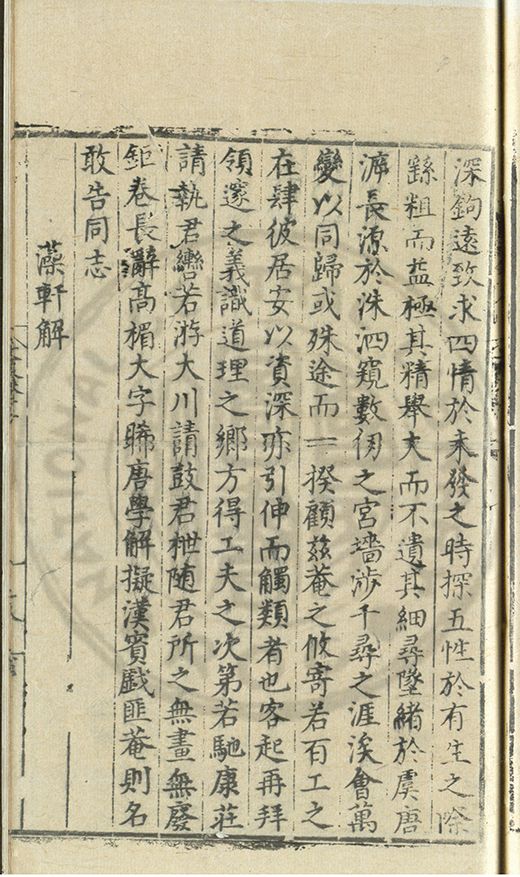 深鉤遠致求四情於未發之時探五性於有生之際
繇粗而益極其精舉大而不遺其細尋墜緒於虞唐
泝長源於洙泗窺數仞之宮墻涉千尋之涯涘會萬
變以同歸或殊途而一揆顧茲菴之攸寄若百工之
在肆彼居安以資深亦引伸而觸類者也客起再拜
領邃之義識道理之鄉方得工夫之次第若馳康莊
請執君轡若游大川請鼓君枻隨君所之無畫無廢
鉅卷長辭高楣大字睎唐學解擬漢賓戲匪菴則名
敢告同志
藻軒解